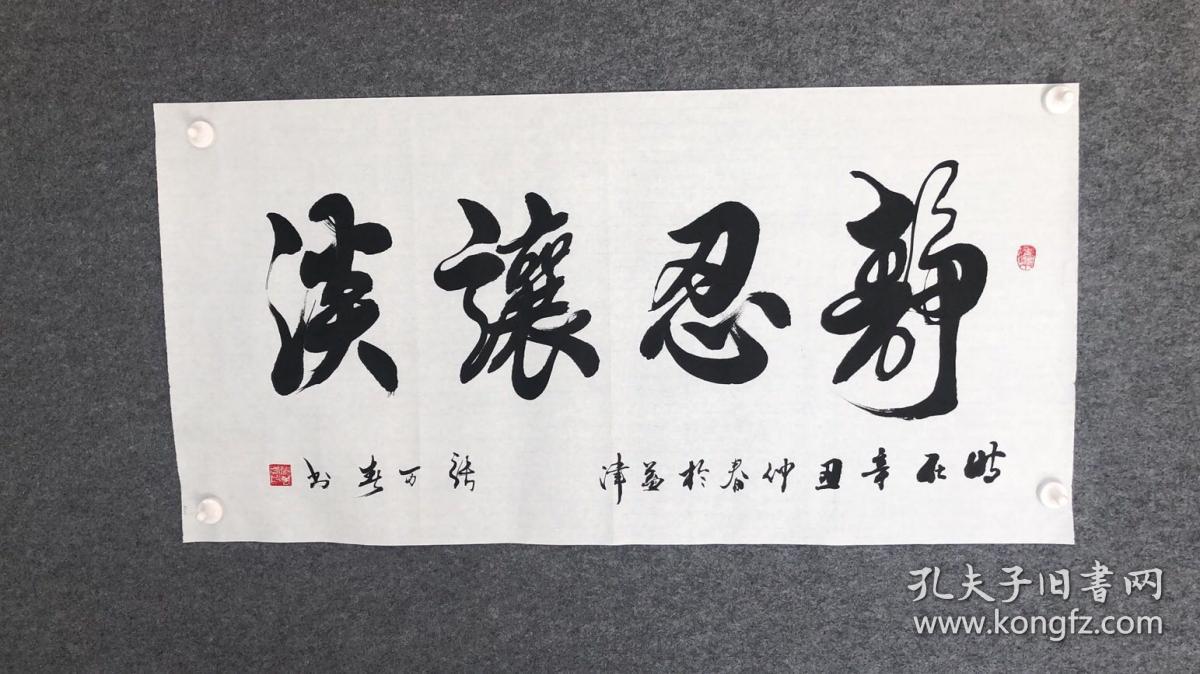 靜忍讓淡
時在辛丑仲春於孟津 張万春书
孔夫子旧書网
www.kongfz.com